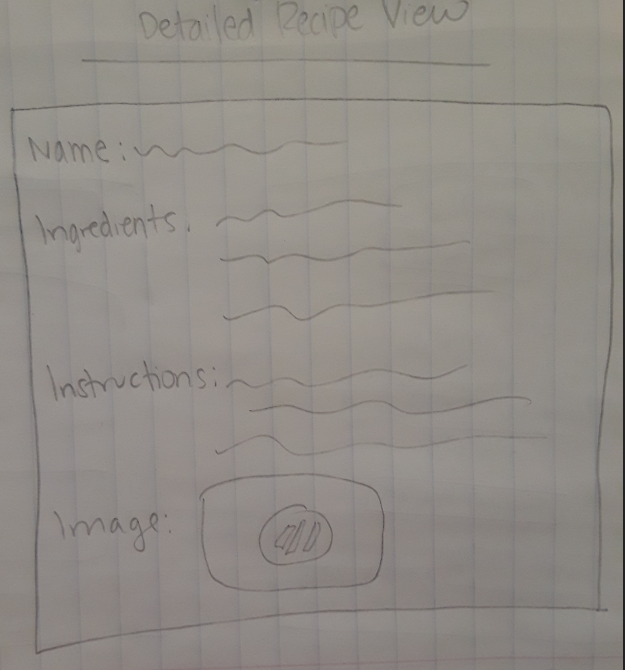 Detailed Recipe View
Name:
Ingredients.
Instructions:
Image: